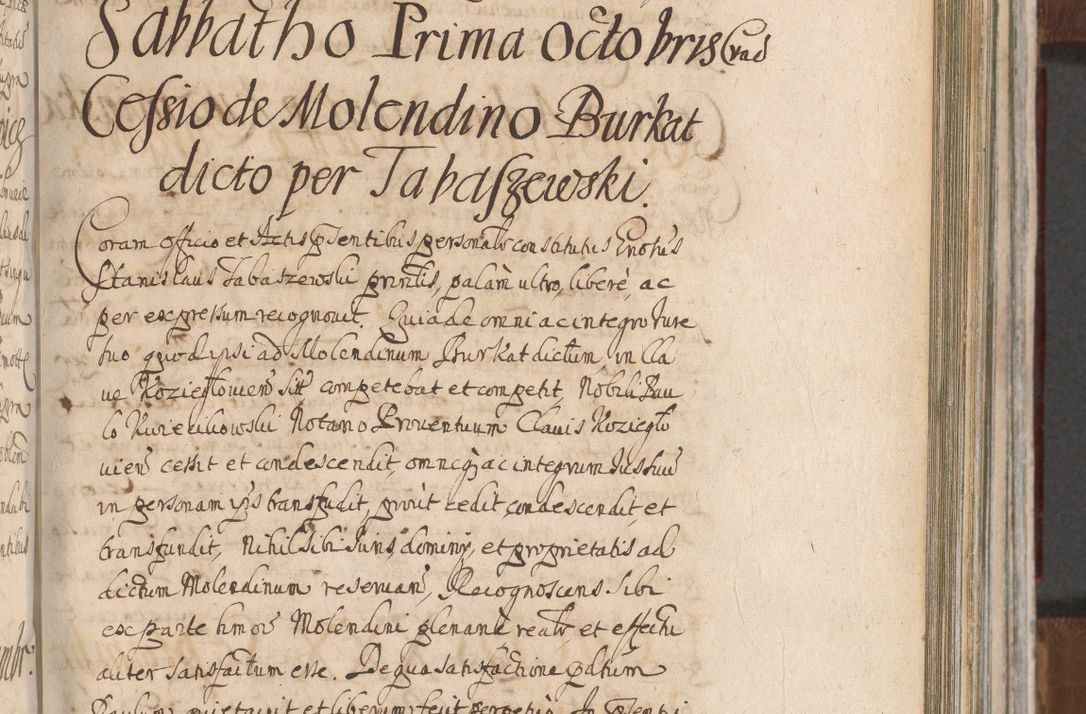 Sabbatho Prima Octobris Crac
Cessio de Molendino Burkat
dicto per Tabaszewski.
Coram Officio et Actis pſentibus personalr constitutus Gnosus
Stanislaus Tabaszewski principlis, palam ultro, libere, ac
per expressum recognovit. Quia de omni ac integro Jure
suo quod ipsi ad Molendinum Burkat dictum, in Cla
ve Koziegłovien sitt competebat et competit, Nobili Pau
lo Notario Proventuum Clavis Koziegło
vien cessit et condescendit, omneq, ac integrum Jus suū
in personam ipsius transfudit, prout cedit condescendit, et
transfundit, Nihil sibi Juris dominij, et proprietatis ad
dictum Molendinum reservans, Recognoscens sibi
ex parte hmoi Molendini plenarie realr et effectu
aliter satisfactum esse. De qua satisfactione pdtum
Paulum quietavit et liberum fecit perpetuo. In pſenti